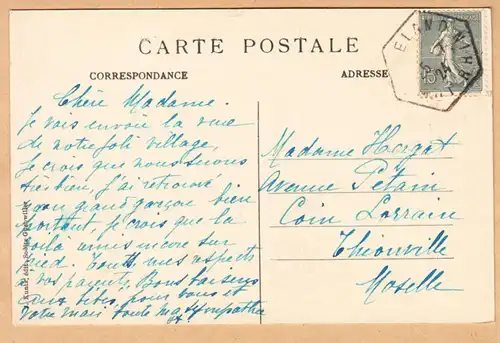 CARTE POSTALE
CORRESPONDANCE
ADRESSE
Chère Madame.
Je vais envoie la vue
de notre joli village,
je crois que nous serons
très bien, j'ai retrouvé
mon grand garçon bien
portant, je crois que la
voilà encore sur
pied. mes respects
à vos parents, Bons baisers
aux bébés, pour vous et
votre mari toute ma sympathie
Madame Hergat
Avenue Pétain
Coin Lorrain
Thionville
Moselle
15